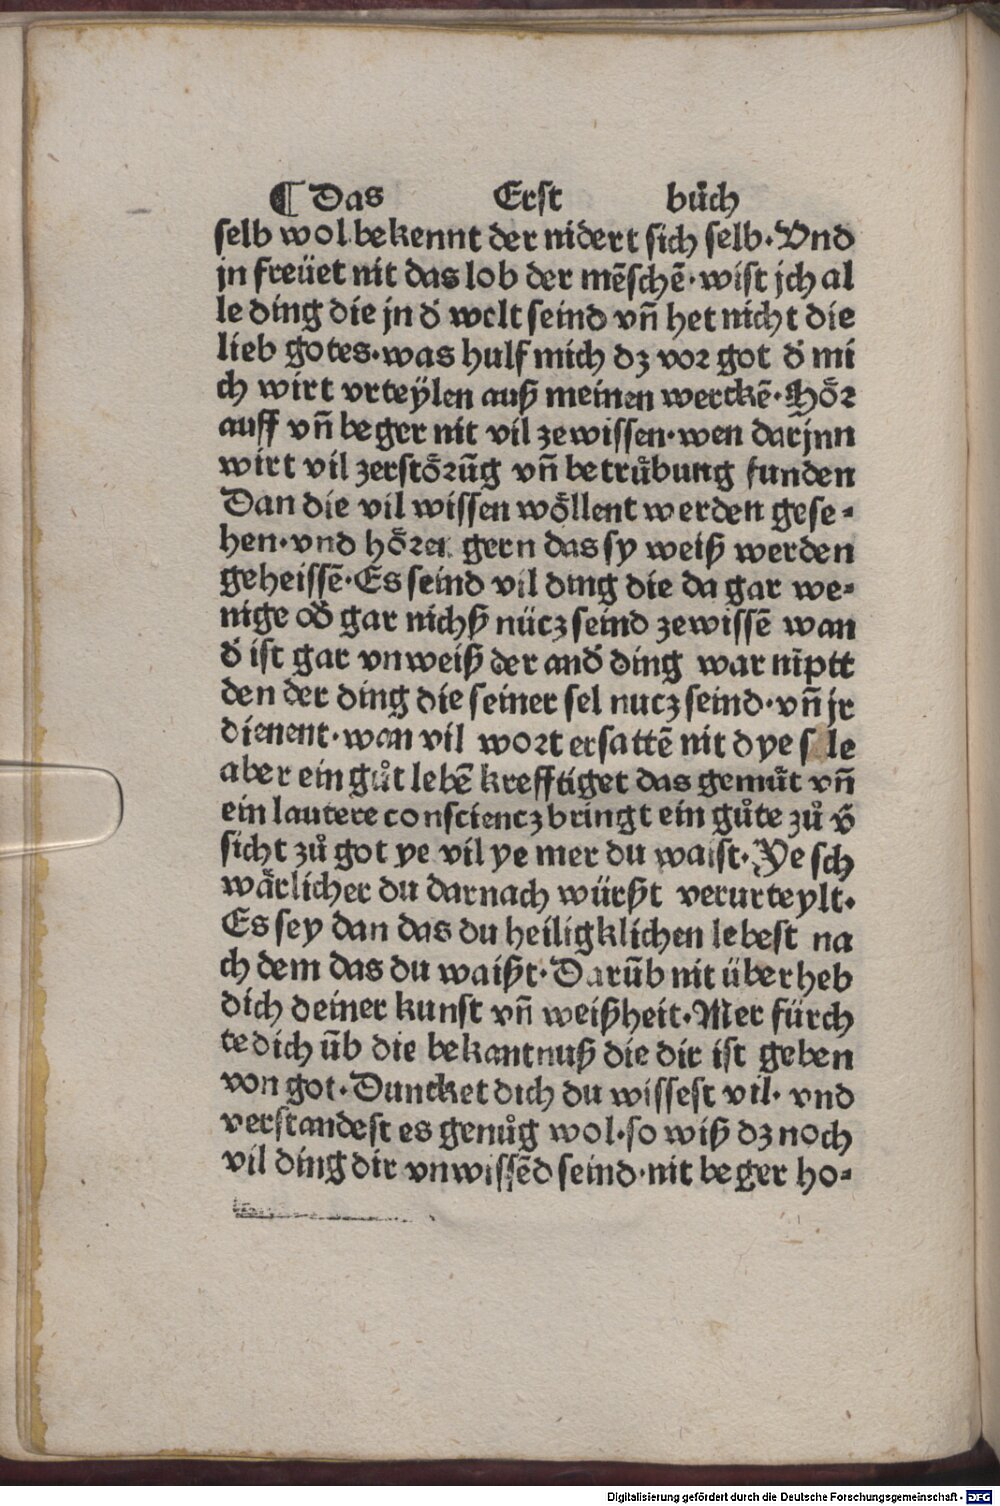 ¶ Das Erst bůch
selb wol bekennt der nidert sich selb. Vnd
jn freüet nit das lob der mēschē. wist jch al
le ding die jn d̕ welt seind vn̄ het nicht die
lieb gotes. was hulf mich dz vor got d̕ mi
ch wirt vrteÿlen auß meinen werckē. Hoͤr
auff vn̄ beger nit vil zewissen. wen dar̄jnn
wirt vil zerstoͤrūg vn̄ betruͤbung funden
Dan die vil wissen woͤllent werden gese⸗
hen. vnd hoͤren gern das sy weiß werden
geheissē. Es seind vil ding die da gar we⸗
nige od̕ gar nichß nücz seind zewissē wan
d̕ ist gar vnweiß der and̕ ding war nīptt
den der ding die seiner sel nucz seind. vn̄ jr
dienent. wan vil wort ersattē nit dye sele
aber ein gůt lebē krefftiget das gemuͤt vn̄
ein lautere consciencz bringt ein gůte zů v̕
sicht zů got ye vil ye mer du waist. Ye sch
waͤrlicher du darnach würßt verurteylt.
Es sey dan das du heiligklichen lebest na
ch dem das du waißt. Darūb nit überheb
dich deiner kunst vn̄ weißheit. Mer fürch
te dich ūb die bekantnuß die dir ist geben
von got. Duncket dich du wissest vil. vnd
verstandest es genůg wol. so wiß dz noch
vil ding dir vnwissēd seind. nit beger ho⸗
Digitalisierung gefördert durch die Deutsche Forschungsgemeinschaft - DFG